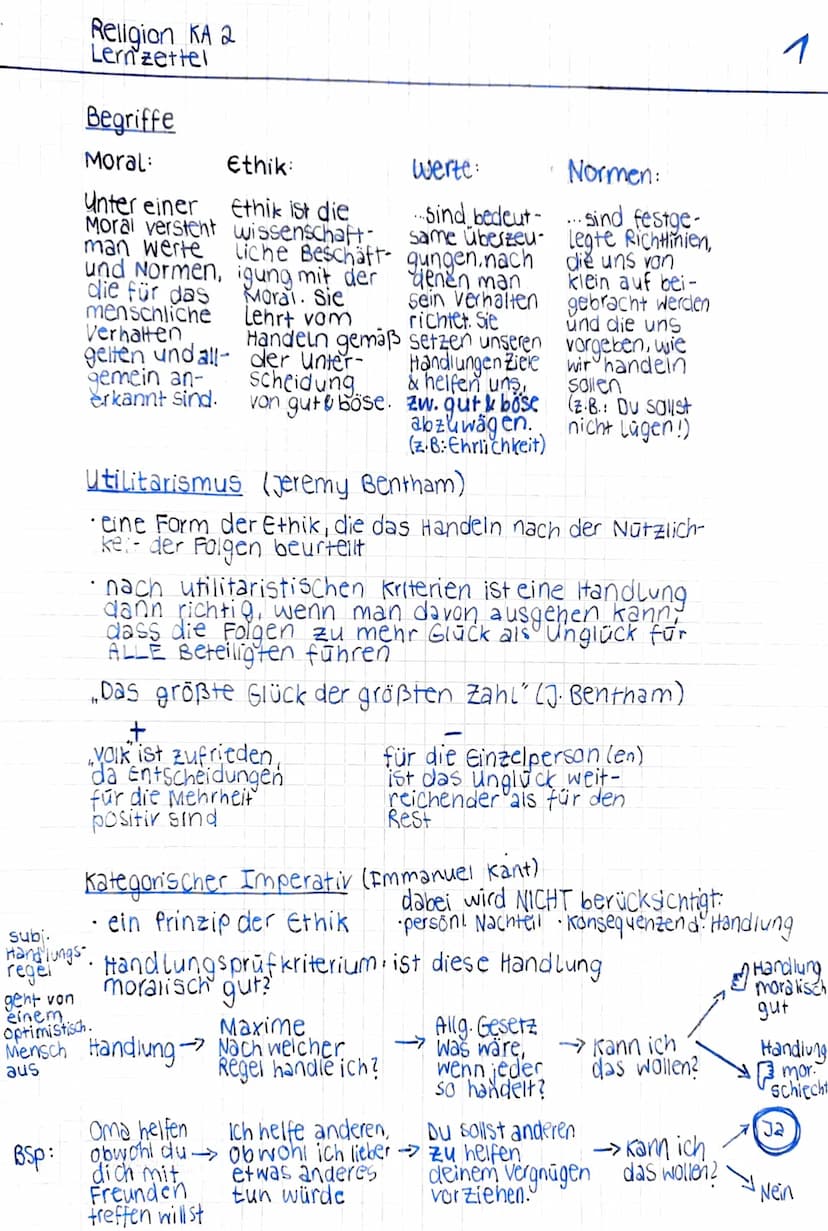 Religion KA 2
Lernzettel
1
Begriffe
Moral:
Unter einer
Moral versteht
man Werte
und Normen,
die für das
menschliche
Verhalten
gelten und all-
gemein an-
erkannt sind.
Ethik:
Ethik ist die
wissenschaft-
liche Beschäft-
igung mit der
Moral. Sie
Lehrt vom
Handeln gemäß
der Unter-
scheidung
von gut & böse.
Werte:
...sind bedeut-
same Überzeu-
gungen, nach
denen man
sein Verhalten
richtet. Sie
setzen unseren
Handlungen Ziele
& helfen uns,
zw. gut & böse
abzuwägen.
(z.B: Ehrlichkeit)
Normen:
...sind festge-
legte Richtlinien,
die uns von
klein auf bei-
gebracht werden
und die uns
vorgeben, wie
wir handeln
sollen
(z.B.: Du sollst
nicht lügen!)
Utilitarismus (Jeremy Bentham)
· eine Form der Ethik, die das Handeln nach der Nützlich-
kei- der Folgen beurteilt
· nach utilitaristischen Kriterien ist eine Handlung
dann richtig, wenn man davon ausgehen kann,
dass die Folgen zu mehr Glück als Unglück für
ALLE Beteiligten führen
„Das größte Glück der größten Zahl" (J. Bentham)
+
„Volk" ist zufrieden,
da Entscheidungen
für die Mehrheit
positiv sind
–
für die Einzelperson(en)
ist das Unglück weit-
reichender als für den
Rest
Kategorischer Imperativ (Immanuel Kant)
dabei wird NICHT berücksichtigt:
· ein Prinzip der Ethik · persönl Nachteil · Konsequenzen d. Handlung
· Handlungsprüfkriterium: ist diese Handlung
moralisch gut?
subj.
Handlungs-
regel
geht von
einem
optimistisch.
Mensch
aus
Handlung →
Maxime
Nach welcher
Regel handle ich?
→
Allg. Gesetz
Was wäre,
wenn jeder
so handelt?
→ Kann ich
das wollen?
Handlung
moralisch
gut
Handlung
mor.
schlecht
BSP:
Oma helfen
obwohl du →
dich mit
Freunden
treffen willst
Ich helfe anderen,
obwohl ich lieber →
etwas anderes
tun würde
Du sollst anderen
zu helfen
deinem Vergnügen
vorziehen.
→ Kann ich
das wollen?
Ja
Nein